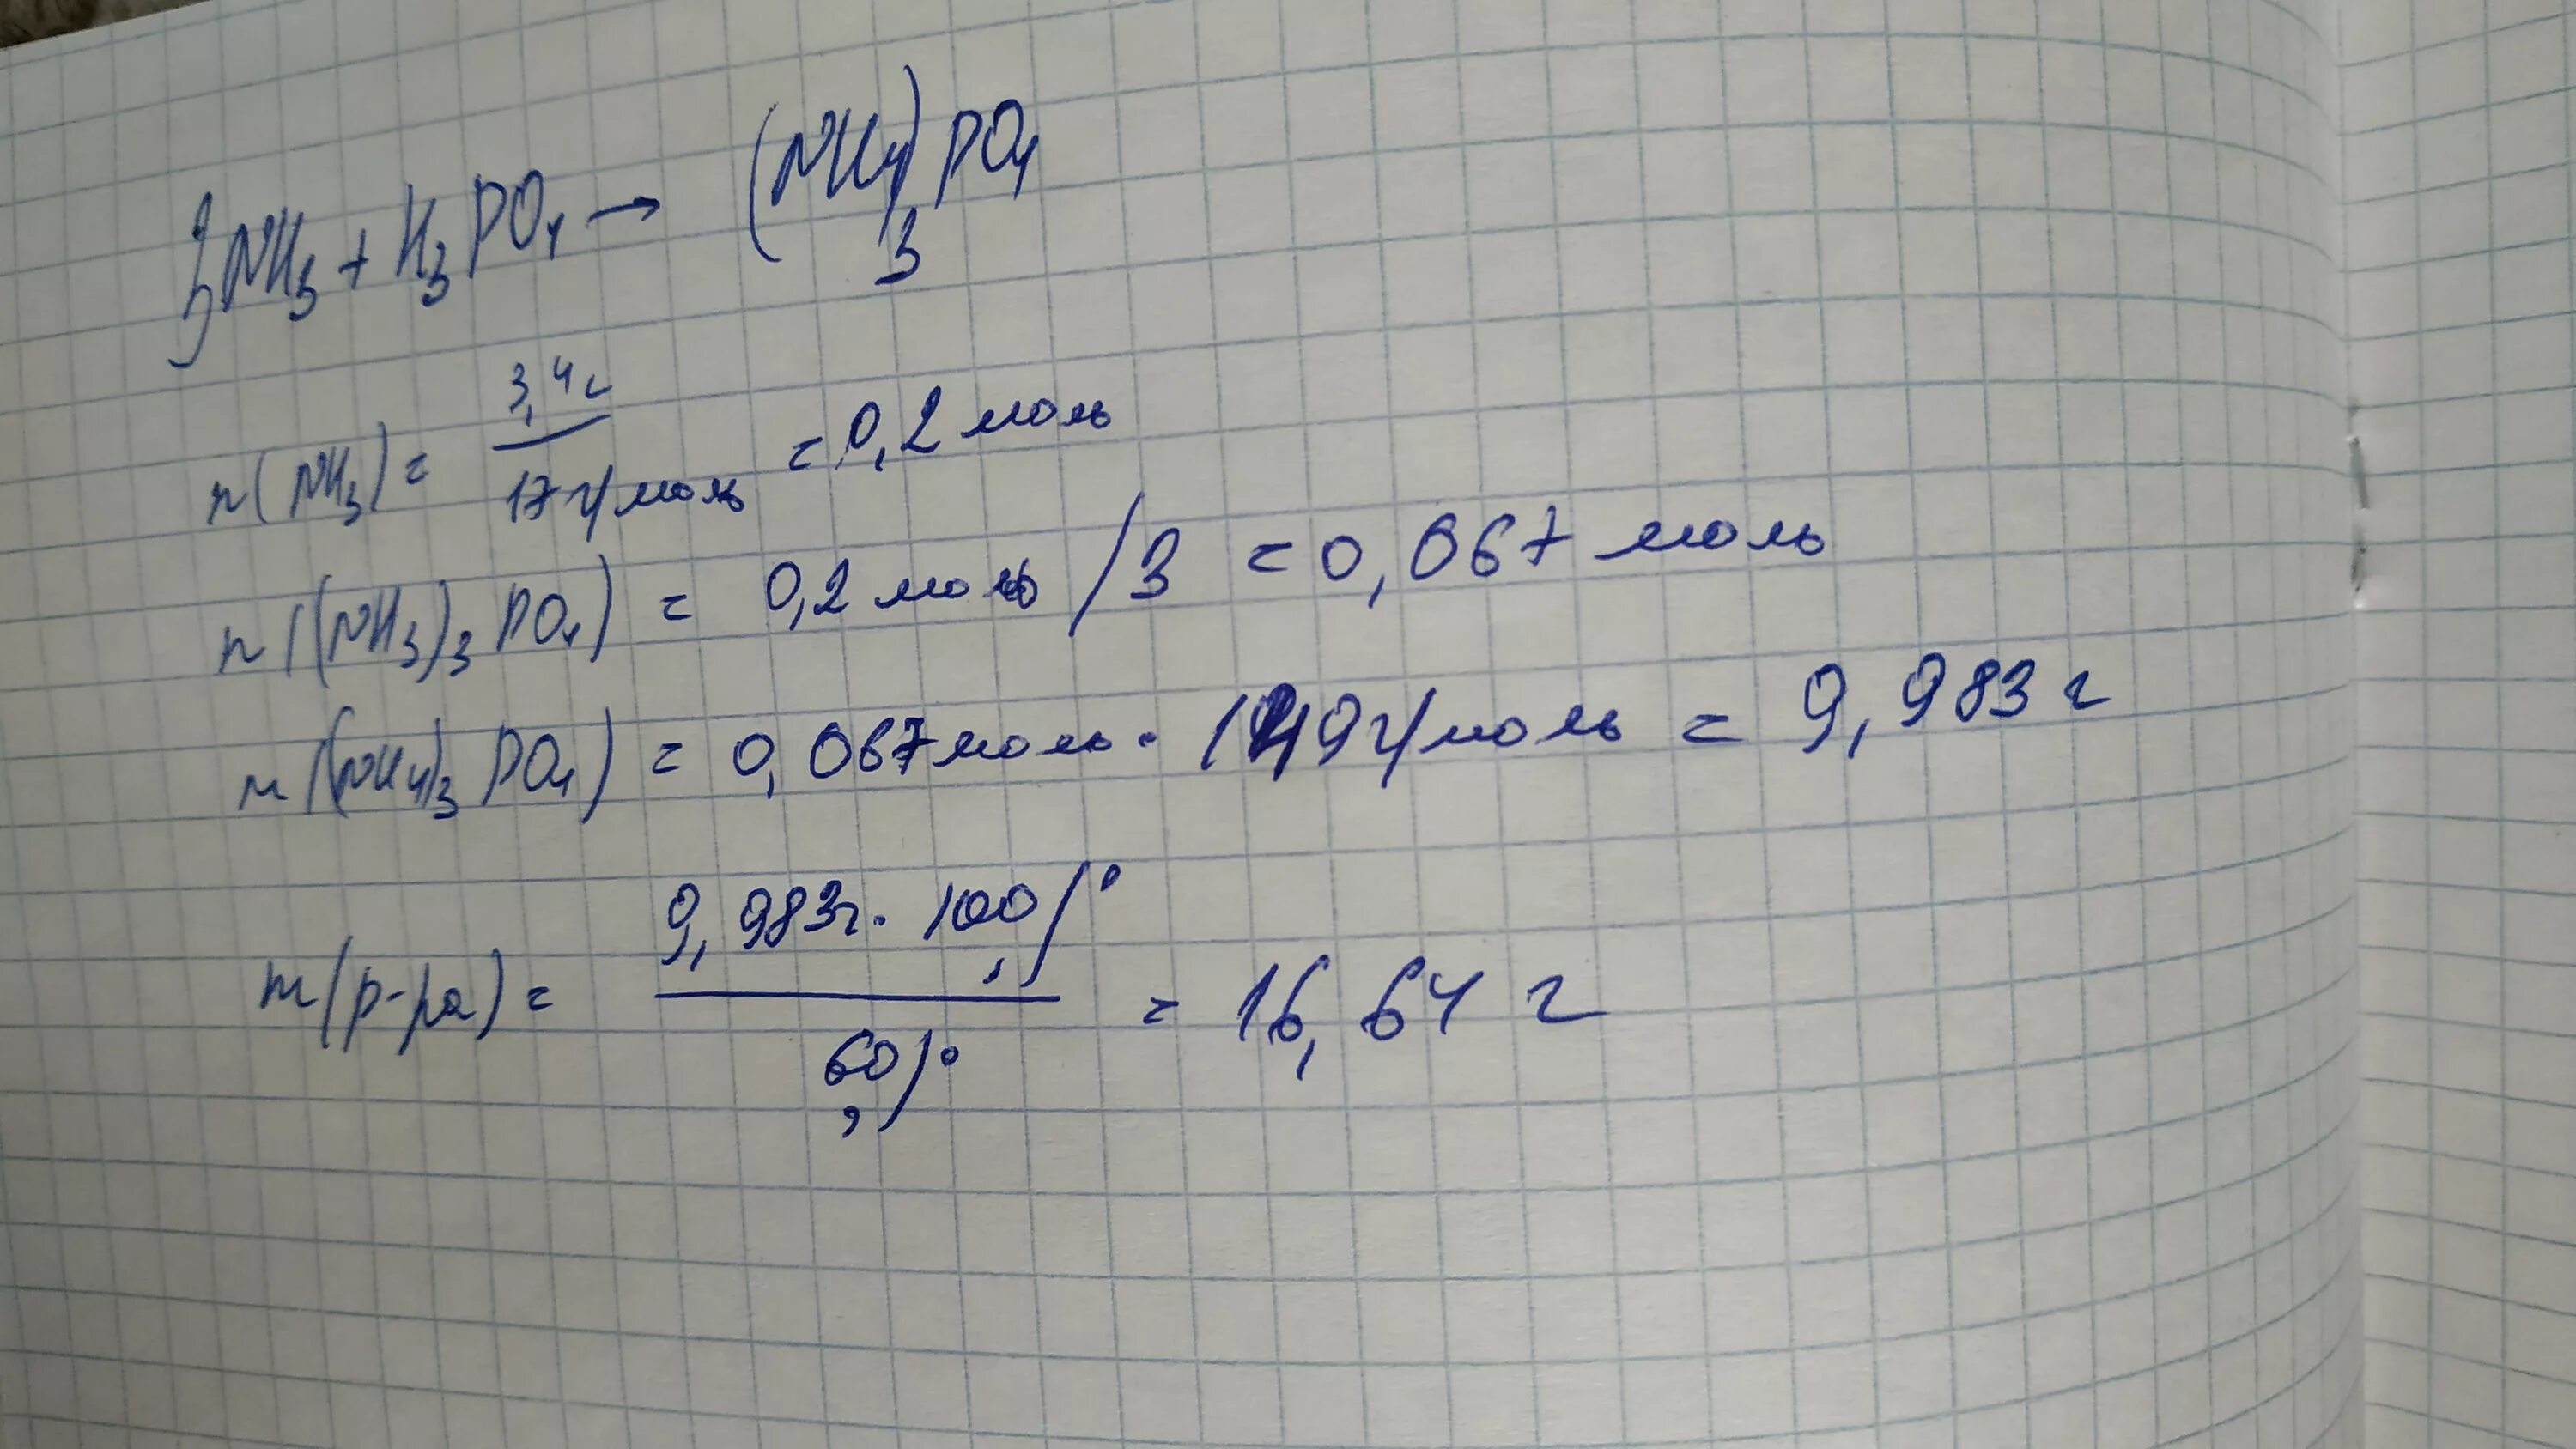 3NH₃ + H₃PO₄ → (NH₄)₃PO₄
n(NH₃) = 3,4г / 17г/моль = 0,2 моль
n((NH₃)₃PO₄) = 0,2 моль /3 = 0,067 моль
m((NH₄)₃PO₄) = 0,067моль · 149г/моль = 9,983 г
m(р-ра) = 9,983г · 100% / 60% = 16,64 г